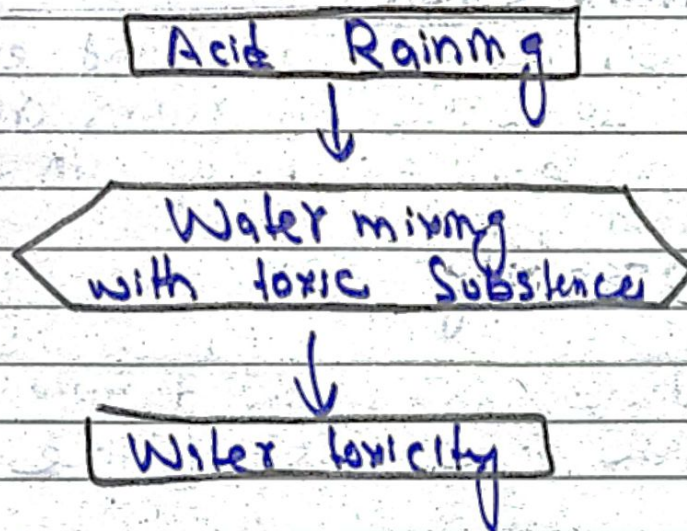 Acid Raining
Water mixing
with toxic Substences
Water toxicity